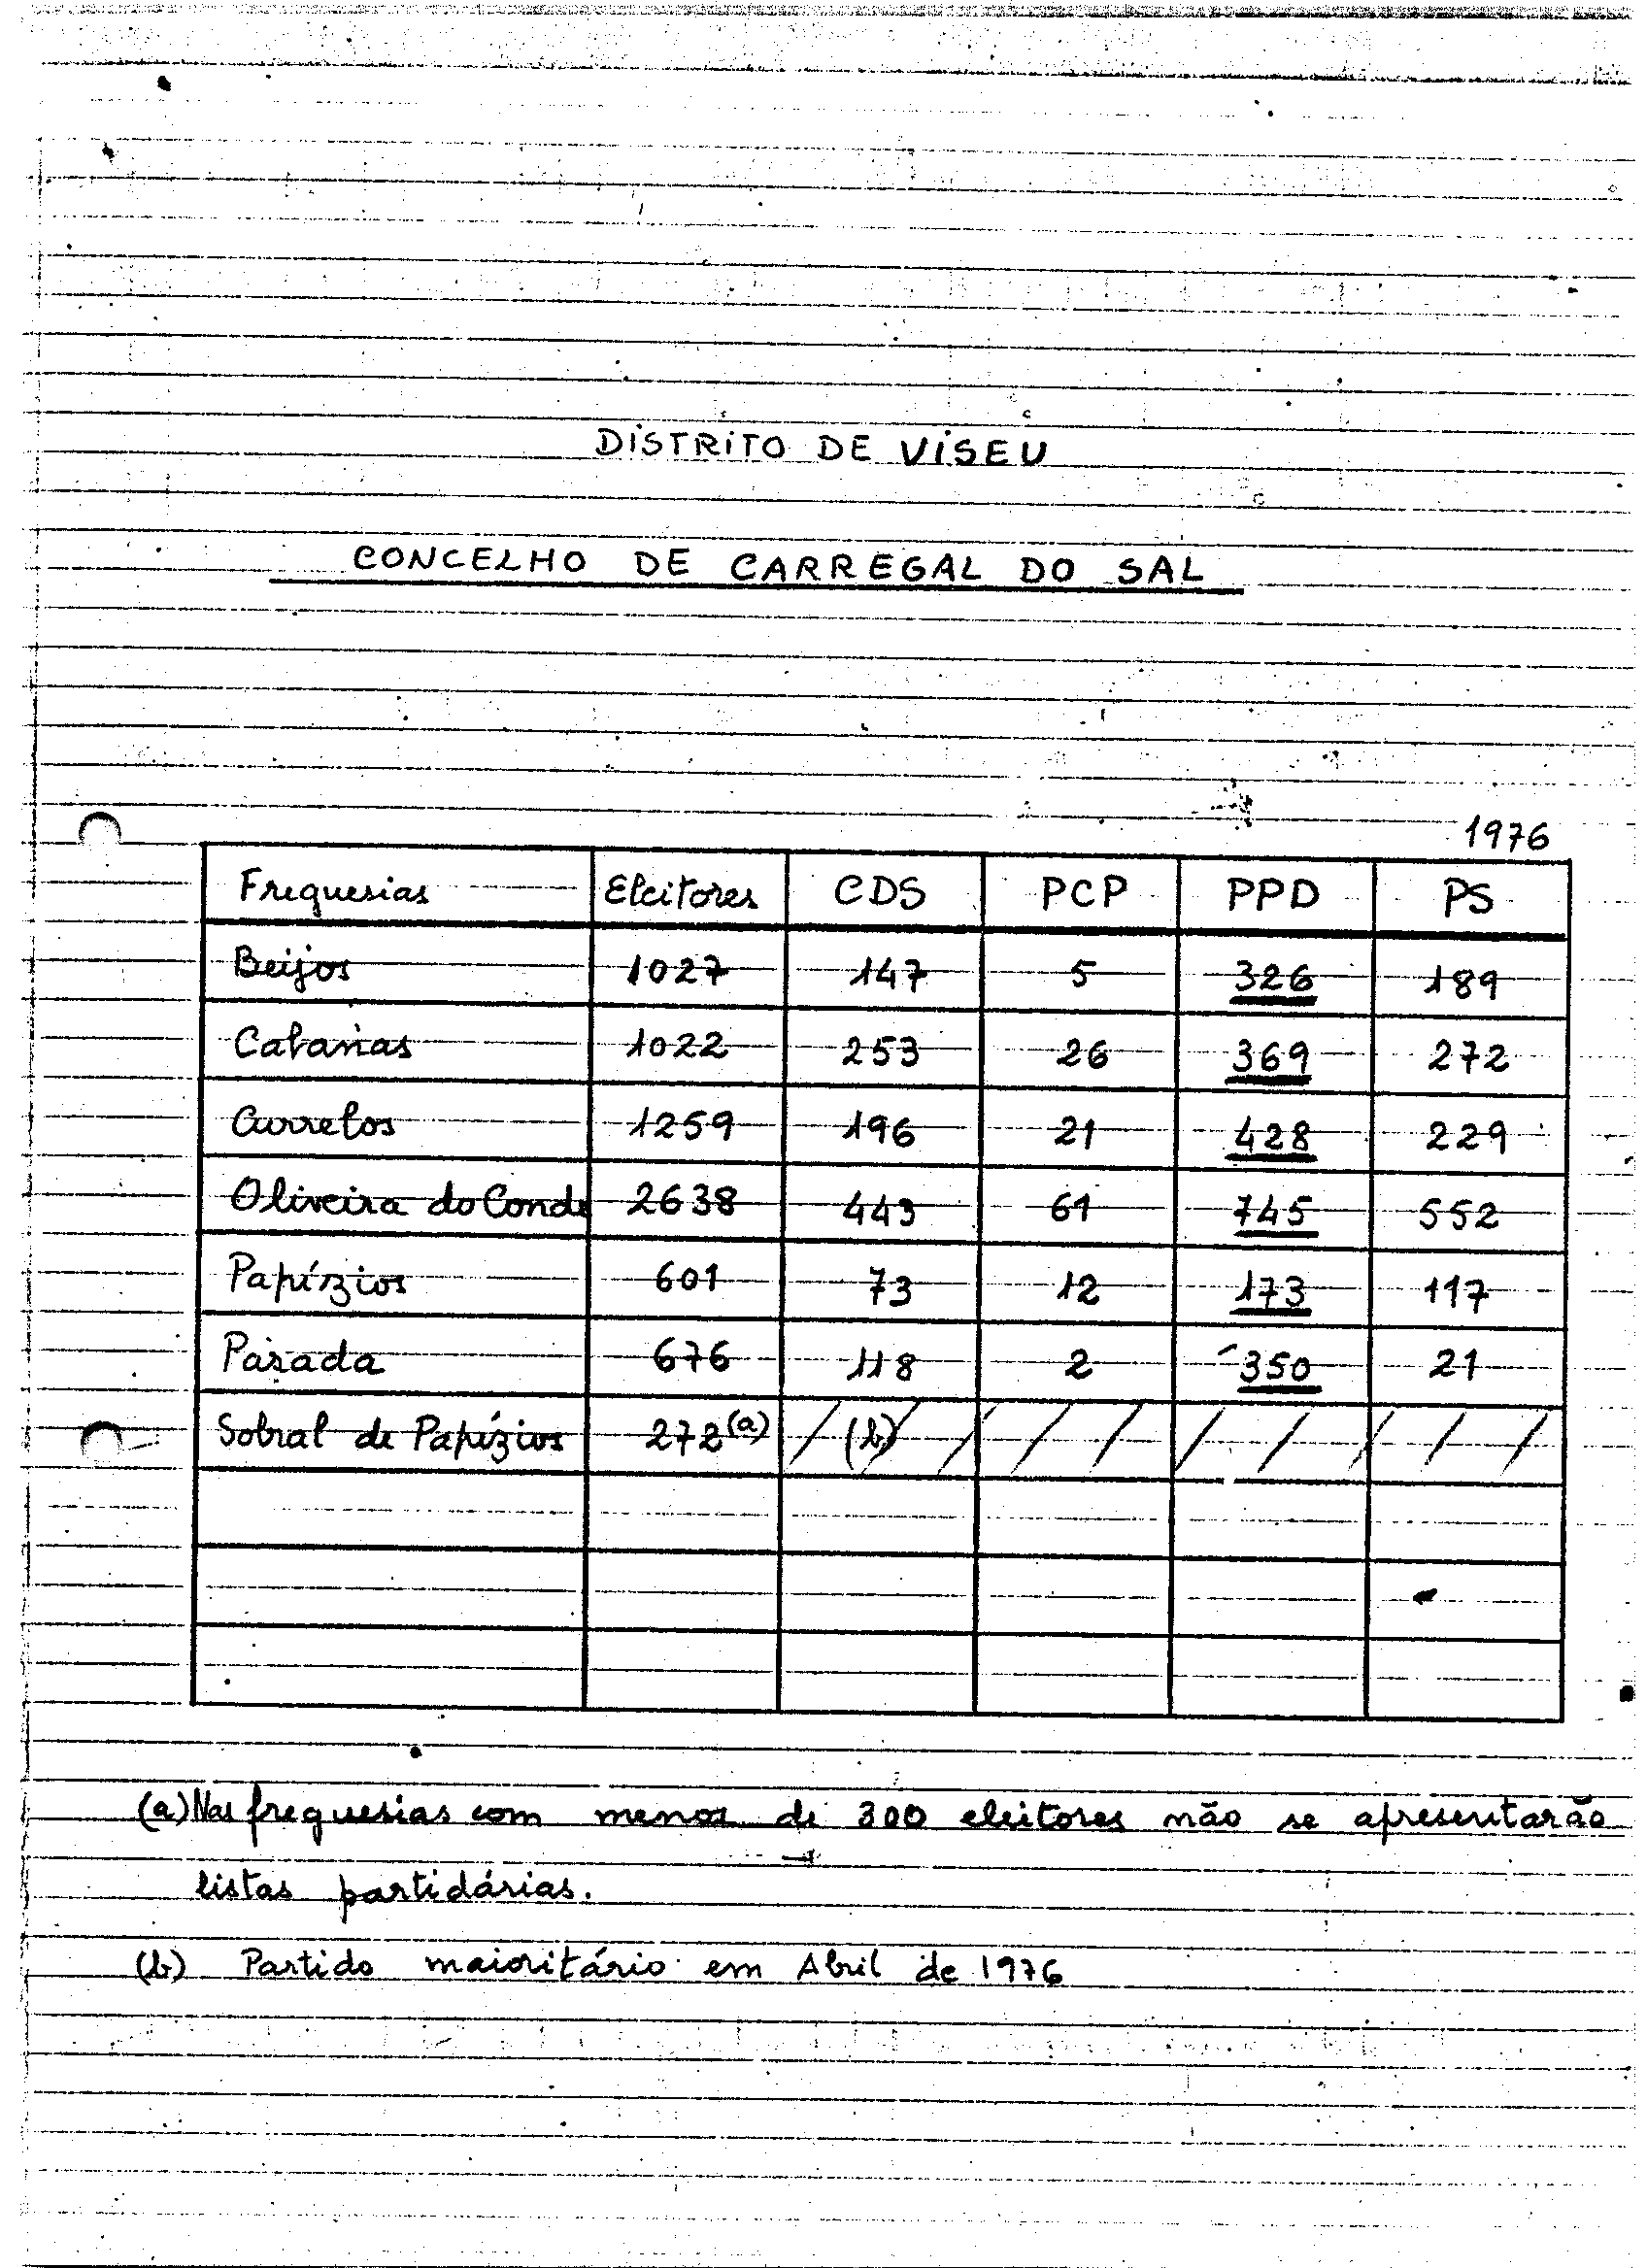 DISTRITO DE VISEU
CONCELHO DE CARREGAL DO SAL
1976
Freguesias Eleitores CDS PCP PPD PS
Beijos 1027 147 5 326 189
Cabanas 1022 253 26 369 272
Currelos 1259 196 21 428 229
Oliveira do Conde 2638 443 61 745 552
Papízios 601 73 12 173 117
Parada 676 118 2 350 21
Sobral de Papízios 272 (a) (b)
(a) Nas freguesias com menos de 300 eleitores não se apresentarão
listas partidárias.
(b) Partido maioritário em Abril de 1976